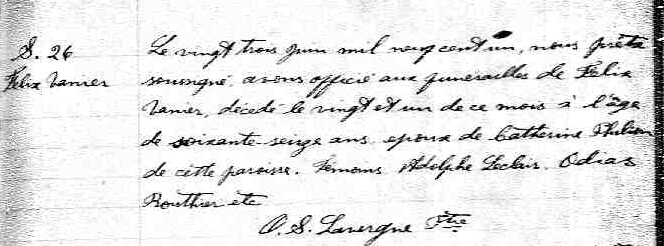 S. 26
Felix Vanier
Le vingt trois juin mil neuf cent un, nous prêtre
soussigné, avons officié aux funérailles de Felix
Vanier, décédé le vingt et un de ce mois à l'âge
de soixante-seize ans, époux de Catherine Philion
de cette paroisse. Témoins Adolphe Leclair. Odias
Routhier etc
O. S. Lavergne Ptre